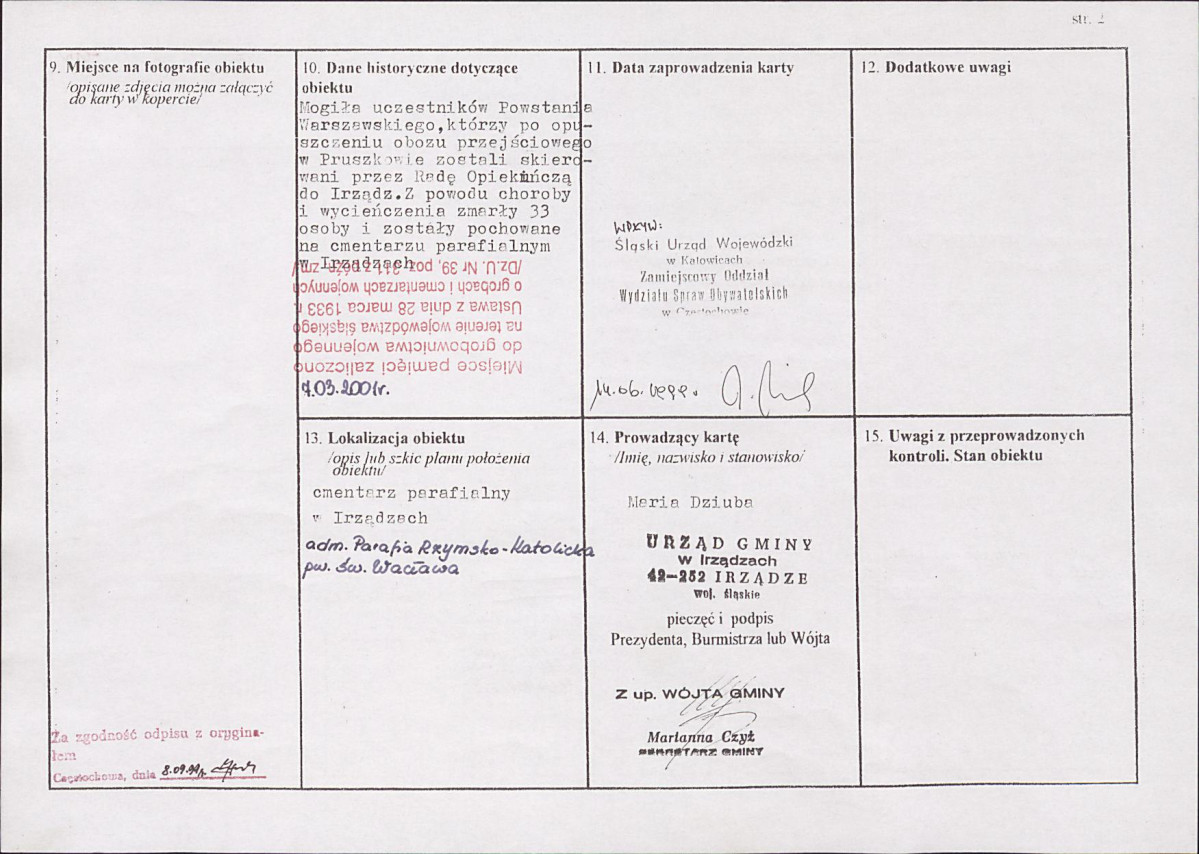 str. 2
9. Miejsce na fotografie obiektu
/opisane zdjęcia można załączyć
do karty w kopercie/
Za zgodność odpisu z orygina-
łem
Częstochowa, dnia 8.09.99r.
10. Dane historyczne dotyczące
obiektu
Mogiła uczestników Powstania
Warszawskiego,którzy po opu-
szczeniu obozu przejściowego
w Pruszkowie zostali skiero-
wani przez Radę Opiekuńczą
do Irządz.Z powodu choroby
i wycieńczenia zmarły 33
osoby i zostały pochowane
na cmentarzu parafialnym
w Irządzach
Miejsce pamięci zaliczono
do grobownictwa wojennego
na terenie województwa śląskiego
Ustawa z dnia 28 marca 1933 r.
o grobach i cmentarzach wojennych
/Dz.U. Nr 39, poz. 311 z późn. zm./
7.03.2001r.
11. Data zaprowadzenia karty
WPŁYW:
Śląski Urząd Wojewódzki
w Katowicach
Zamiejscowy Oddział
Wydziału Spraw Obywatelskich
w Częstochowie
14.06.1999.
12. Dodatkowe uwagi
13. Lokalizacja obiektu
/opis lub szkic planu położenia
obiektu/
cmentarz parafialny
w Irządzach
adm. Parafia Rzymsko-Katolicka
pw. św. Wacława
14. Prowadzący kartę
/Imię, nazwisko i stanowisko/
Maria Dziuba
URZĄD GMINY
w Irządzach
42-252 IRZĄDZE
woj. śląskie
pieczęć i podpis
Prezydenta, Burmistrza lub Wójta
Z up. WÓJTA GMINY
Marianna Czyż
SEKRETARZ GMINY
15. Uwagi z przeprowadzonych
kontroli. Stan obiektu